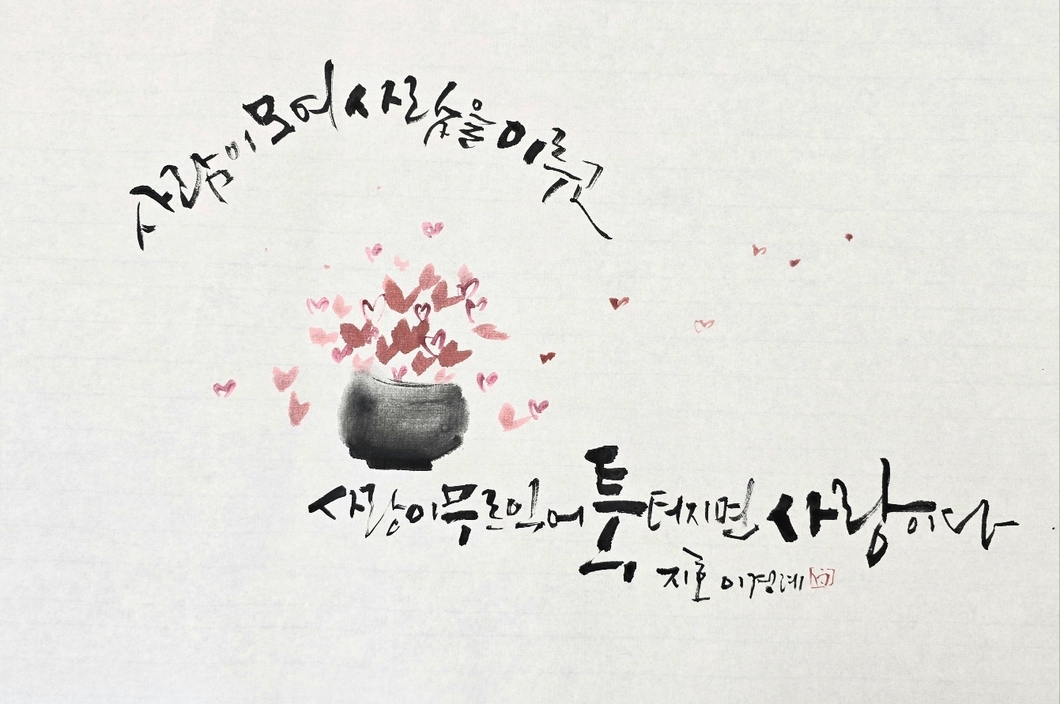 사람이 모여 숲을 이루고
사랑이 무르익어 툭 터지면 사랑이다
지호 이경례